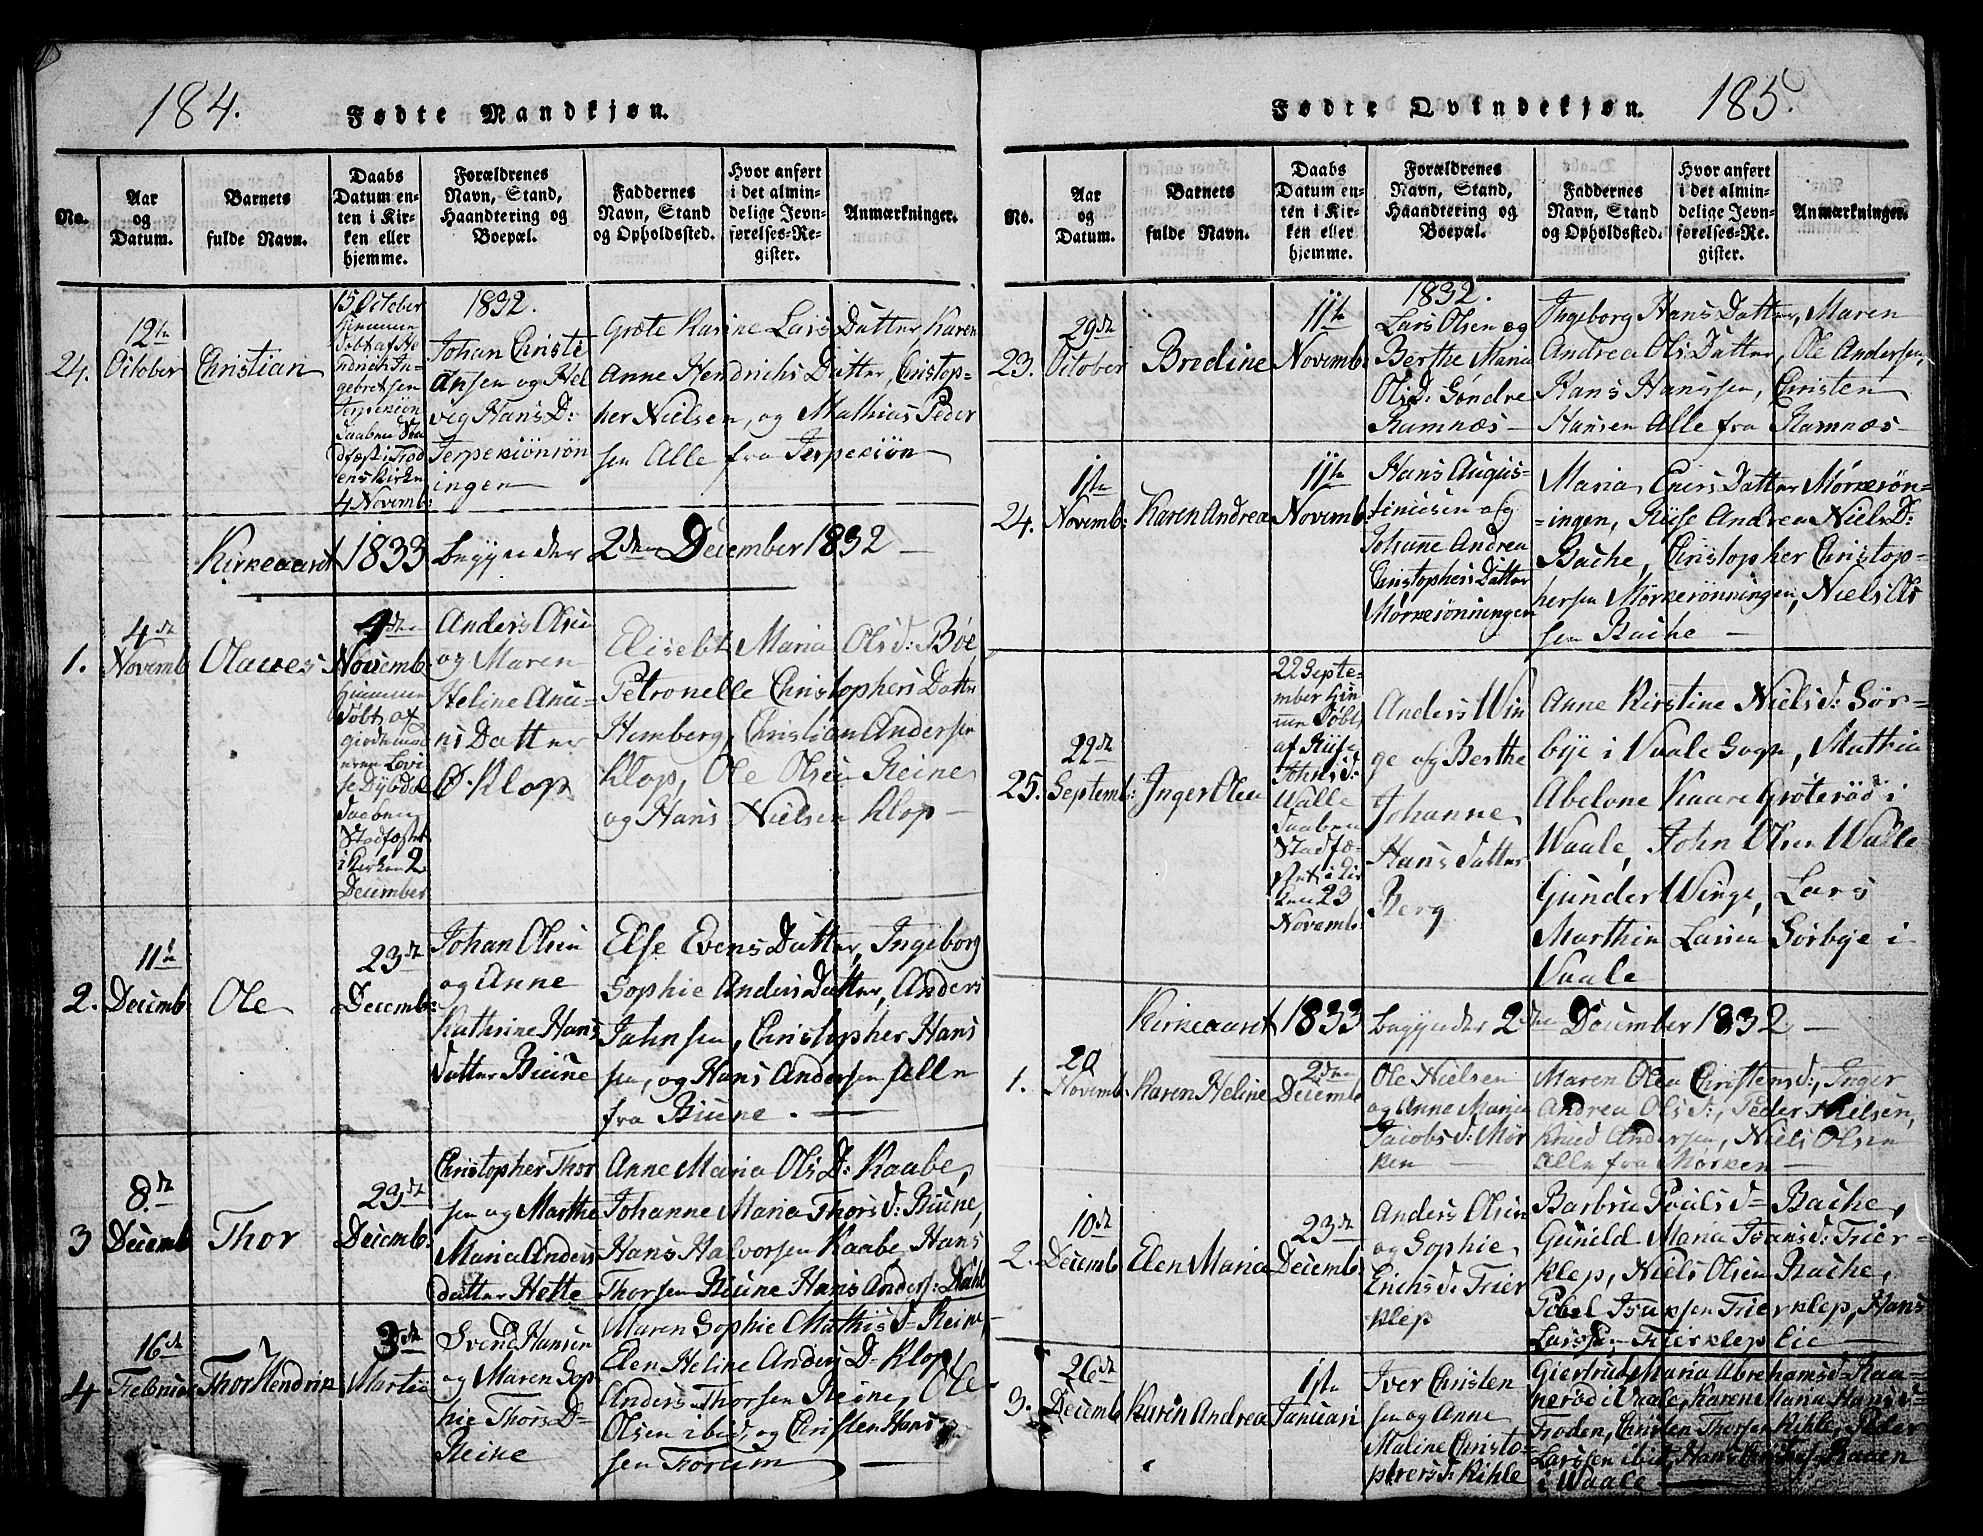 184.
Fødte Mandkjøn.
No.
Aar
og
Datum.
Barnets
fulde Navn.
Daabs
Datum en-
ten i Kir-
ken eller
hjemme.
Forældrenes
Navn, Stand,
Haandtering og
Boepæl.
Faddernes
Navn, Stand
og Opholdssted.
Hvor anført
i det almin-
delige Jevn-
førelses-Re-
gister.
Anmærkninger.
24.
12te
October
Christian
15 October
Hjemme
Døbt af He
ndrich In-
gebretsen
Terpekiøn
Kirken
4 Novemb:
1832.
Johan Christi
Ansen og Hel
vig Hans D:
Terpekiønrøn
ingen
Grete Karine Lars Datter, Karen
Anne Hendrichs Datter, Christop-
her Nielsen, og Mathias Peder
sen Alle fra Terpekiøn
Kirkeaaret 1833 begynder 2den December 1832 —
1.
4de
Novemb
Olaves
4de
Novemb:
Hjemme
Døbt af
Stadfæstet
i Kirken 2
December
Anders Olsen
og Maren
Heline
Datter
Ø. Klop
Elisebt Maria Ols d: Bøe
Petronelle Christophers Datter
Hemberg, Christian Andersen
Klop, Ole Olsen Reine
og Hans Nielsen Klop —
2.
11te
Decemb
Ole
23de
Decemb:
Johan Olsen
og Anne
Kathrine Hans
Datter Biune
Else Evens Datter, Ingeborg
Sophie Anders Datter, Anders
Jahnsen, Christopher Hans
sen, og Hans Andersen Alle
fra Biune. —
3
8de
Decemb
Thor
23de
Decemb:
Christopher Thor
sen og Marthe
Maria Anders
datter Hette
Anne Maria Ols D: Kaabe,
Johanne Maria Thors d: Biune,
Hans Halvorsen Kaabe, Hans
Thorsen Biune Hans Anders: Dahl
4
16de
Februar
Thor Hendrik
3de
Martii
Svend Hansen
og Maren Sop
hie Thors D=
Reine
Maren Sophie Mathis d= Reine,
Elen Heline Anders D= Klop
Anders Thorsen Reine, Ole
Olsen ibid, og Christen Hans
sen Forum —
185.
Fødte Qvindekjøn.
No.
Aar
og
Datum.
Barnets
fulde Navn.
Daabs
Datum en-
ten i Kir-
ken eller
hjemme.
Forældrenes
Navn, Stand,
Haandtering og
Boepæl.
Faddernes
Navn, Stand
og Opholdssted.
Hvor anført
i det almin-
delige Jevn-
førelses-Re-
gister.
Anmærkninger.
23.
29de
October
Bredine
11te
Novemb:
1832.
Lars Olsen og
Berthe Maria
Ols D: Søndre
Ramnæs —
Ingeborg Hans Datter, Maren
Andrea Ols Datter, Ole Andersen,
Hans Hanssen, Christen
Hansen Alle fra Ramnæs —
24.
1ste
Novemb:
Karen Andrea
11te
Novemb:
Hans Augus-
tinusen og
Johanne Andrea
Christophers Datter
Mørkerønningen
Maria Eners Datter Mørkerøn-
ingen, Andrea Niels D:
Bache, Christopher Christop-
hersen Mørkerønningen, Niels Ols
sen Bache —
25.
22de
Septemb:
Inger Olea
22 Septe-
mber Hie-
mme Døbt
af
Johns d:
Walle
Stadfæ-
stet i Kir
ken 23
Novemb:
Anders Win
ge og Berthe
Johanne
Hans Datter
Berg
Anne Kirstine Niels d: Sør-
bye i Vaale Sogn, Mathia
Abelone Kaare Grøterød i
Waale, John Olsen Walle
Gunder Winge, Lars
Marthin Larsen Sørbye i
Vaale
Kirkeaaret 1833 begynder 2den December 1832 —
1.
20
Novemb:
Karen Heline
2den
Decemb:
Ole Nielsen
og Anne Maria
Jacobs d: Mør
ken
Maren Olea Christens d:, Inger
Andrea Ols d:, Peder Nielsen,
Knud Andersen, Niels Olsen
Alle fra Mørken —
2.
10de
Decemb
Elen Maria
23de
Decemb:
Anders Olsen
og Sophie
Erichs d: Frier
klep
Barbru Pouls d= Bache,
Gunild Maria Isaks d: Frier-
klep, Niels Olsen Bache,
Isaksen Frierklep, Hans
Larssen Frierklep Eie —
3.
26de
Decemb
Karen Andrea
1ste
Januari
Iver Christen
sen og Anne
Maline Christo-
phers d: Kihle
Giertrud Maria Abrahams d: Raa-
nerød i Vaale, Karen Maria Hans d=
Froden, Christen Thorsen Kihle, Peder
Larssen ibid, Hans Raaen
i Waale —